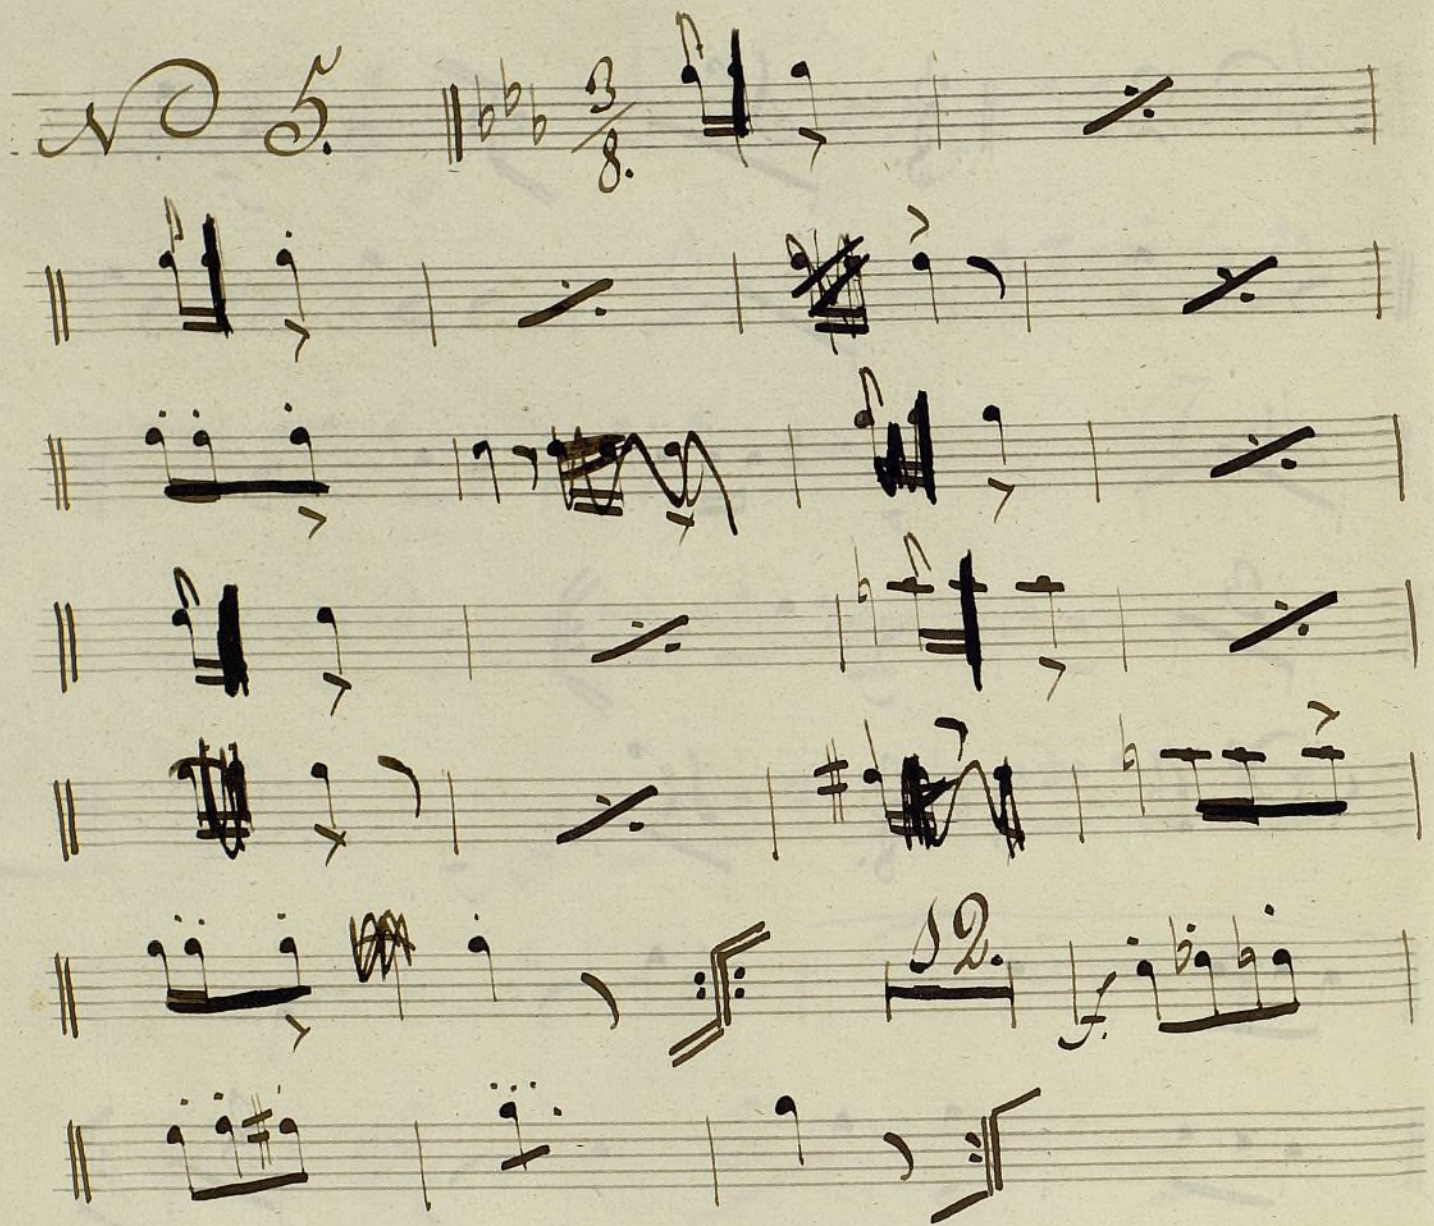 No 5. 3/8.
12.
f.